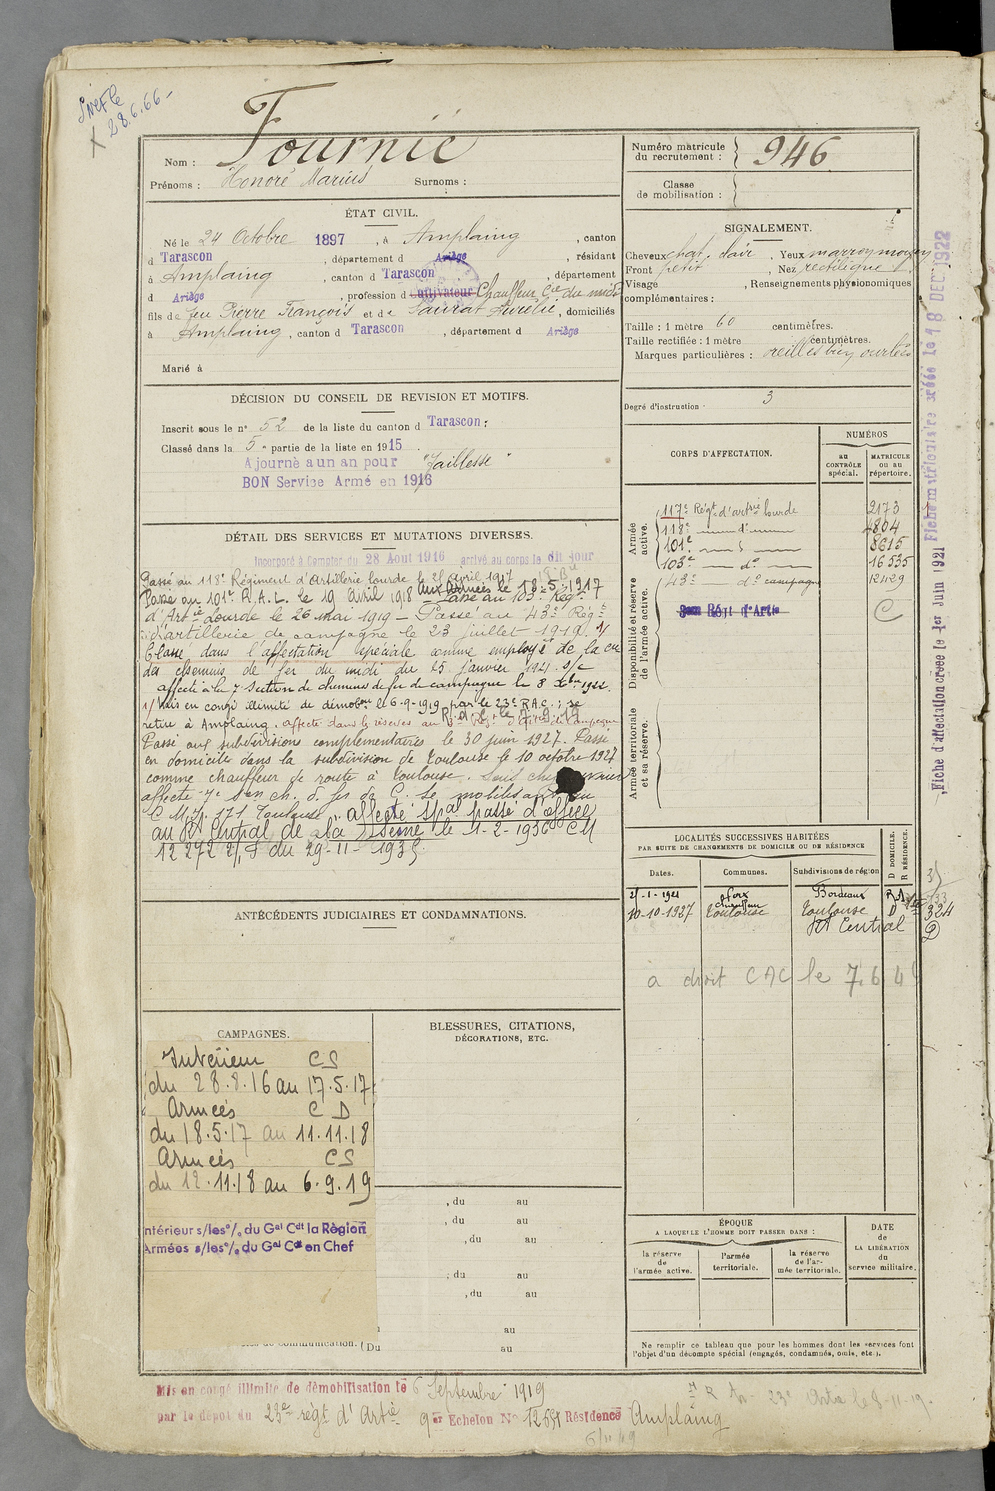 28.6.66-
Fournié
Nom :
Prénoms : Honoré Marius Surnoms :
Numéro matricule du recrutement : 946
Classe de mobilisation :
ÉTAT CIVIL.
Né le 24 Octobre 1897, à Amplaing, canton
d Tarascon, département d Ariège, résidant
à Amplaing, canton d Tarascon, département
d Ariège, profession d Cultivateur Chauffeur Cie du midi
fils de feu Pierre François et de Saurat Aurélie, domiciliés
à Amplaing, canton d Tarascon, département d Ariège
Marié à
SIGNALEMENT.
Cheveux chat. clair Yeux marron moyen
Front petit, Nez rectiligne
Visage , Renseignements physionomiques
complémentaires :
Taille : 1 mètre 60 centimètres.
Taille rectifiée : 1 mètre centimètres.
Marques particulières : oreilles bien ourlées
Degré d'instruction · 3
DÉCISION DU CONSEIL DE REVISION ET MOTIFS.
Inscrit sous le n° 52 de la liste du canton d Tarascon ;
Classé dans la 5e partie de la liste en 1915.
Ajourné à un an pour "faiblesse"
BON Service Armé en 1916
DÉTAIL DES SERVICES ET MUTATIONS DIVERSES.
Incorporé à Compter du 28 Aout 1916 arrivé au corps le dit jour
Passé au 118e Régiment d'Artillerie lourde le 21 Avril 1917
Passé au 101e R.A.L. le 19 Avril 1918 Aux Armées le 18-5-1917 Passé au 103e Régt
d'Artie Lourde le 26 mai 1919 — Passé au 43e Rég-
d'artillerie de campagne le 23 juillet 1919. 1/
Classé dans l'affectation spéciale comme employé de la cie
des chemins de fer du midi du 25 janvier 1921. s/c
affecté à la 7e Section de chemins de fer de campagne le 8 Xbre 1922.
1/ mis en congé illimité de démobon le 6-9-1919 par le 23e R.A.C. ; se
retire à Amplaing.
Passé aux subdivisions complémentaires le 30 juin 1927. Passé
en domicile dans la subdivision de Toulouse le 10 octobre 1927
comme chauffeur de route à Toulouse.
affecté 7e Son ch. d. fer de C. Se mobilisant au
C.M.J. 171 Toulouse. affecté spal passé d'office
au Rt Central de la Seine le 1-2-1936 CM
12272 2/. S du 29-11-1935.
CORPS D'AFFECTATION.
NUMÉROS
au CONTRÔLE spécial.
MATRICULE ou au répertoire.
Armée active.
117e Régt d'artie lourde 2173
118e — d° — 4804
101e — d° — 8615
103e — d° — 16535
Disponibilité et réserve de l'armée active.
43e — d° campagne 12429
Régt d'Artie C
Armée territoriale et sa réserve.
LOCALITÉS SUCCESSIVES HABITÉES
PAR SUITE DE CHANGEMENTS DE DOMICILE OU DE RÉSIDENCE
Dates. Communes. Subdivisions de région D DOMICILE. R RÉSIDENCE.
21-1-1921 foix Bordeaux
10-10-1927 chauffeur Toulouse Toulouse D 324
Rt Central
à droit CAC le 7.6.4
ANTÉCÉDENTS JUDICIAIRES ET CONDAMNATIONS.
CAMPAGNES.
Intérieur CS
du 28.8.16 au 17.5.17
Armées CD
du 18.5.17 au 11.11.18
Armées CS
du 12.11.18 au 6.9.19
ntérieur s/les °/. du Gal Cdt la Région
Armées s/les °/. du Gal Cdt en Chef
BLESSURES, CITATIONS,
DÉCORATIONS, ETC.
, du au
, du au
, du au
, du au
, du au
au
(Du au
ÉPOQUE
A LAQUELLE L'HOMME DOIT PASSER DANS :
la réserve de l'armée active.
l'armée territoriale.
la réserve de l'armée territoriale.
DATE de LA LIBÉRATION du service militaire.
Ne remplir ce tableau que pour les hommes dont les services font
l'objet d'un décompte spécial (engagés, condamnés, omis, etc.).
Mis en congé illimité de démobilisation le 6 Septembre 1919
par le dépôt du 23e régt d'Artie 9e Echelon N° 12651 Résidence Amplaing
Fiche d'affectation créée le 1er Juin 1921
Fiche matriculaire créée le 18 DEC 1922